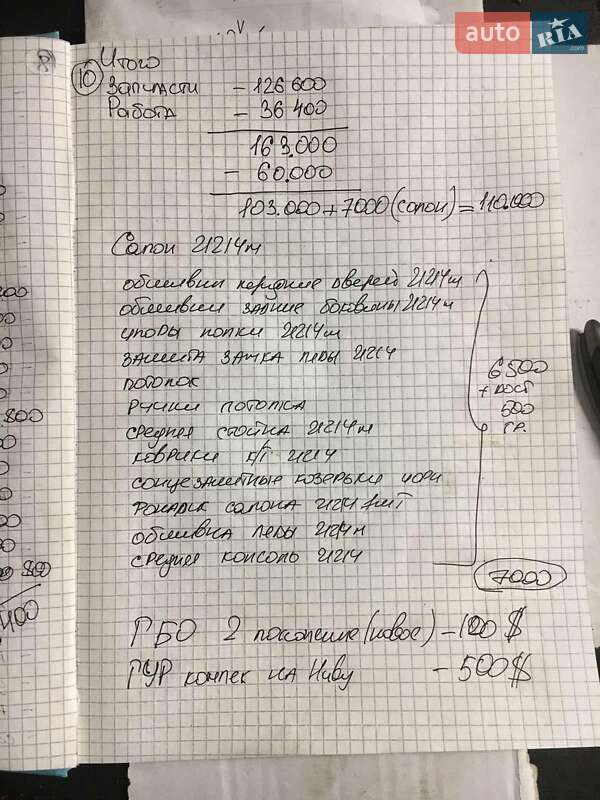 auto RIA .com
10 Итого
Запчасти - 126 600
Работа - 36 400
163.000
- 60.000
103.000 + 7000 (салон) = 110.000
Салон 21214м
обшивки передние дверей 21214м
обшивки задние боковины 21214м
упоры полки 21214м
защита замка ляды 21214
потолок
ручки потолка
средняя стойка 21214м
коврики к/т 21214
солнцезащитные козырьки чорн
салона 21214 1шт
обшивка ляды 21214м
средняя консоль 21214
6500
+ дост
500
гр.
7000
ГБО 2 поколение (новое) - 100 $
ГУР комплек на Ниву - 500 $
800
800
400